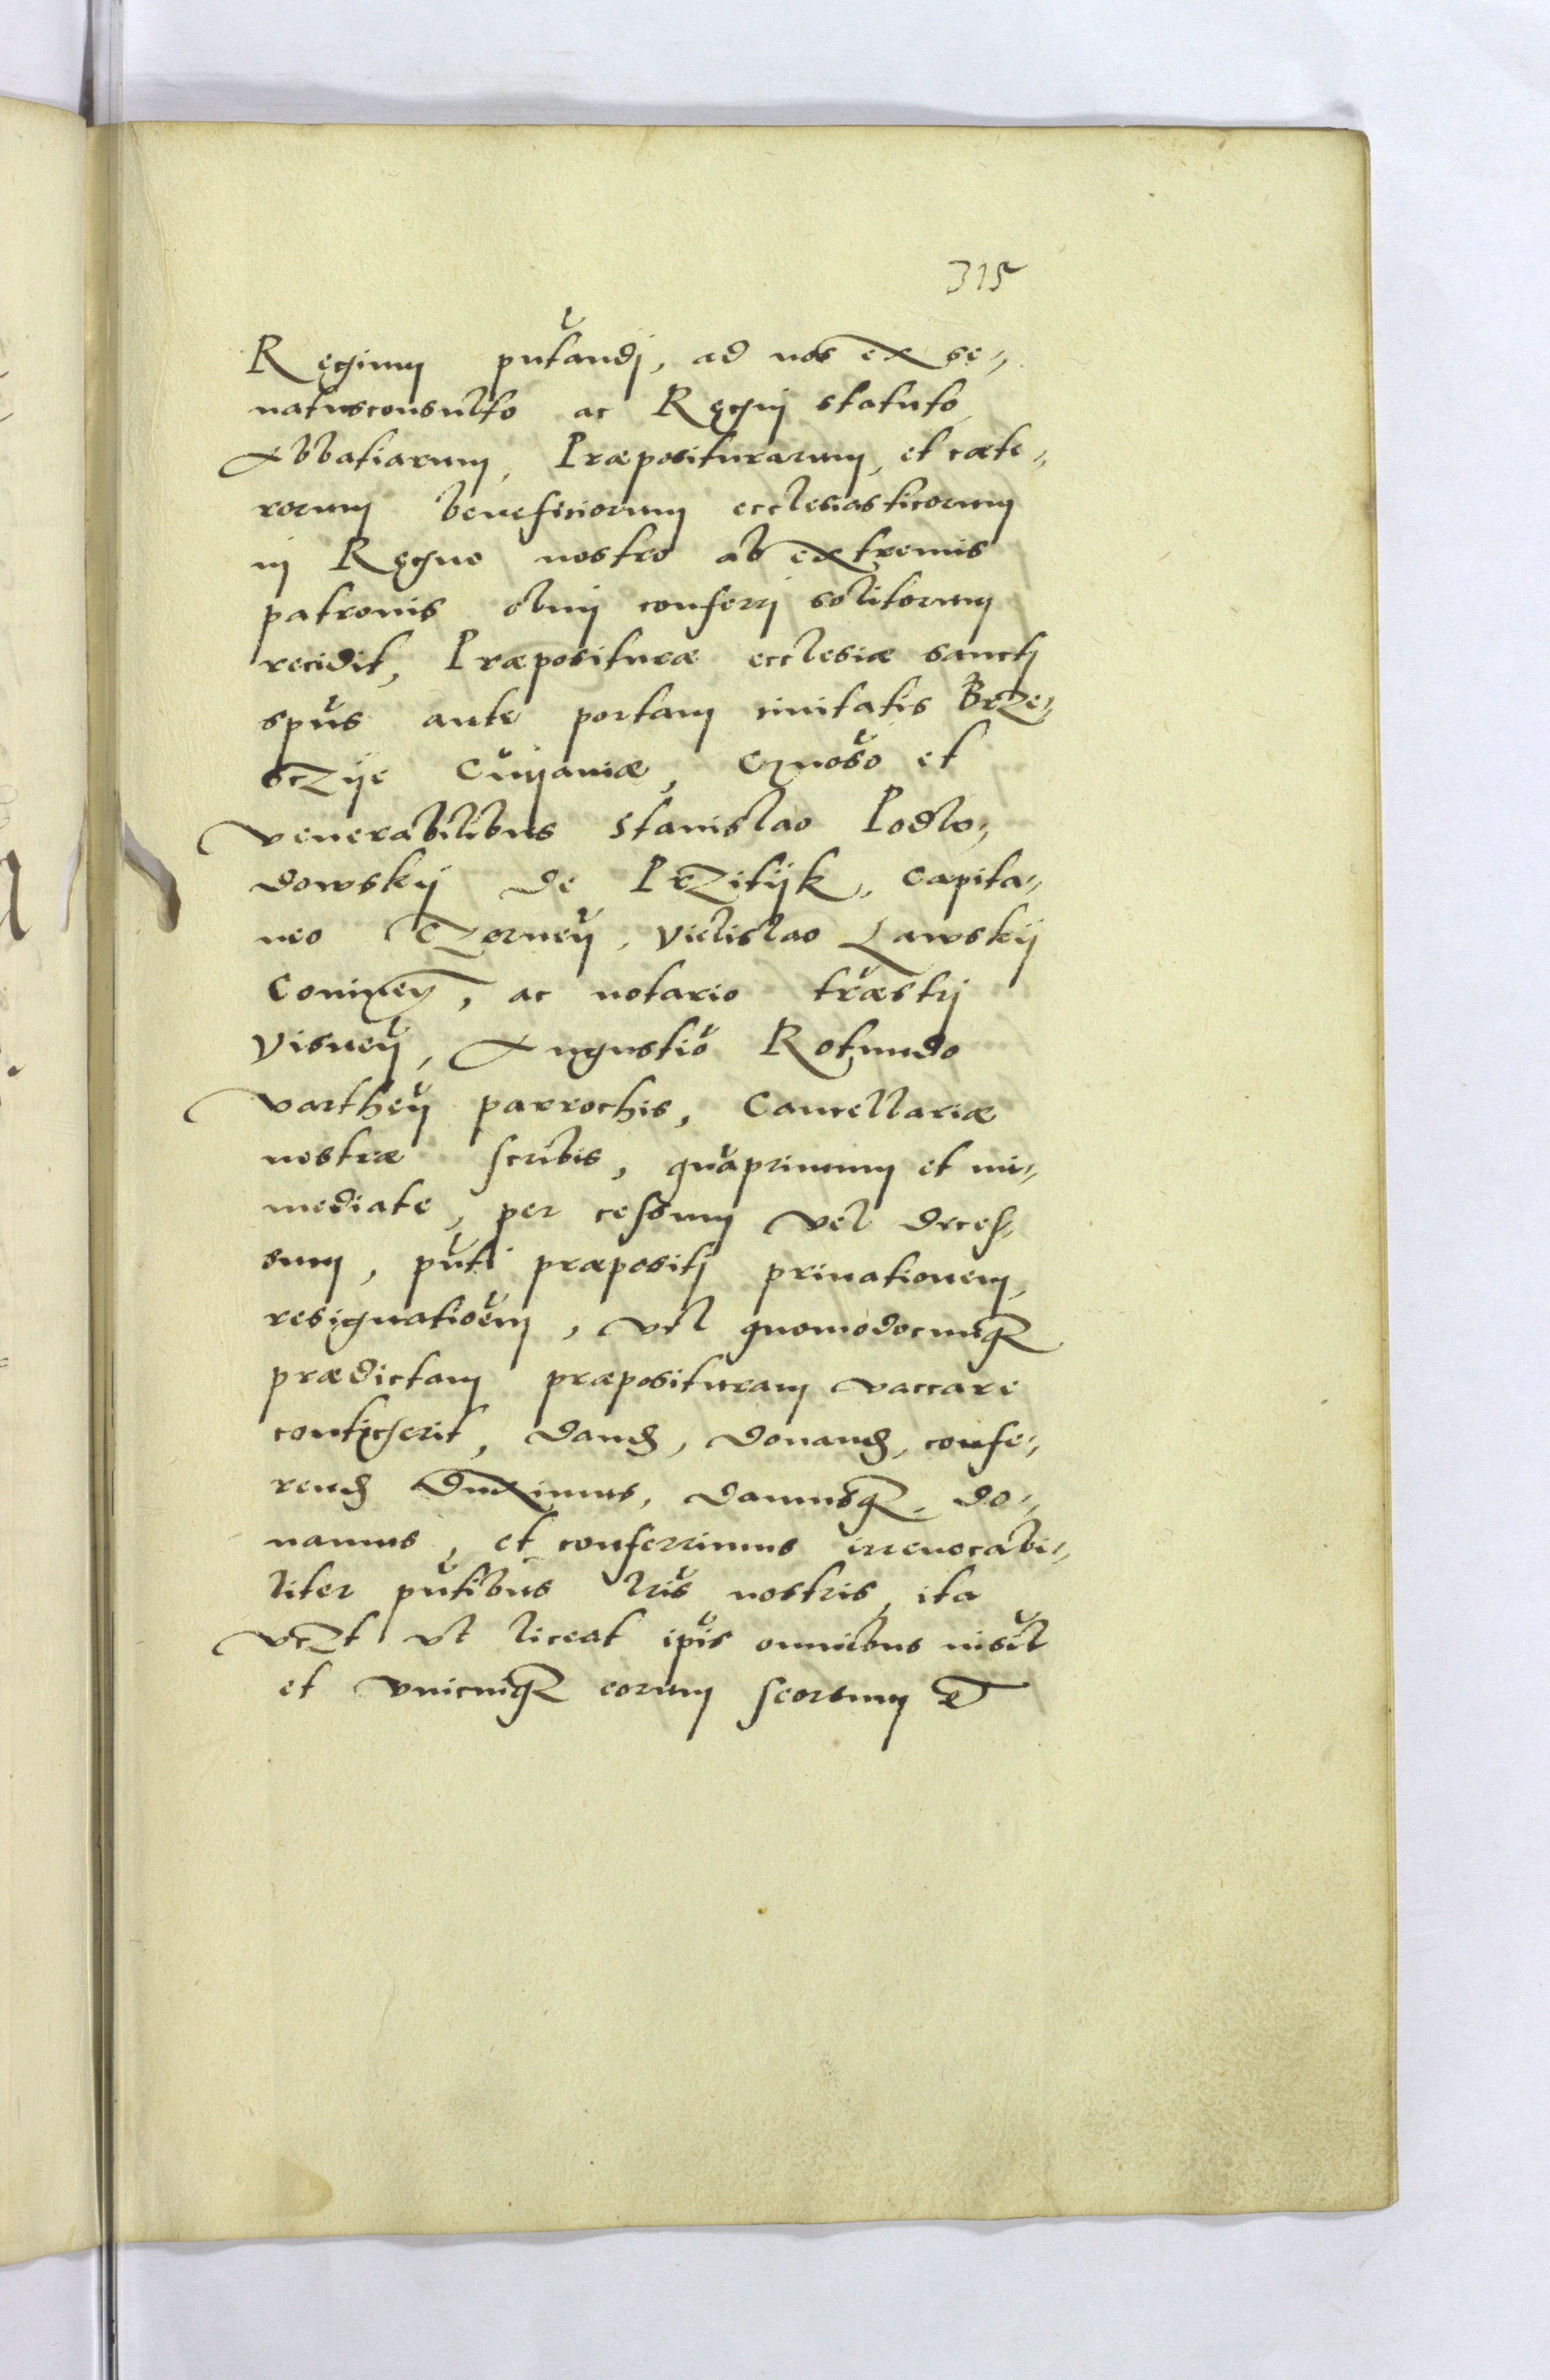 315
Regium pntandj, ad nos ex se,,
natusconsulto ac Regnj statuto
Abbatiarum, Præpositurarum, et cæte,,
rorum beneficiorum ecclesiasticorum
in Regno nostro ab extremis
patronis olim conferrj solitorum
recidit, Præposituræ ecclesiæ sanctj
spus ante portam ciuitatis Brze,,
sczije Cuijauiæ, Gnoso et
venerabilibus Stanislao Podlo,,
dowskij de Przitijk, Capita,,
neo Czerneñ, Vielislao Lawskij
ac notario træstrj
Visneñ, Augustio Rotundo
varthen parrochis, Cancellariæ
nostræ scribis, quaprimum et im,,
mediate, per cessum vel deces,,
sum, pnti præpositj priuationem,
resignatioem, vel quomodocunq
prædictam præposituram vaccare
contigerit, dand, donand, confe,,
rend duximus, damusq, do,,
namus, et conferrimus irreuocabi,,
liter pntibus lris nostris, ita
vczt vt liceat ipis omnibus insil
et vnicuiq eorum seorsum